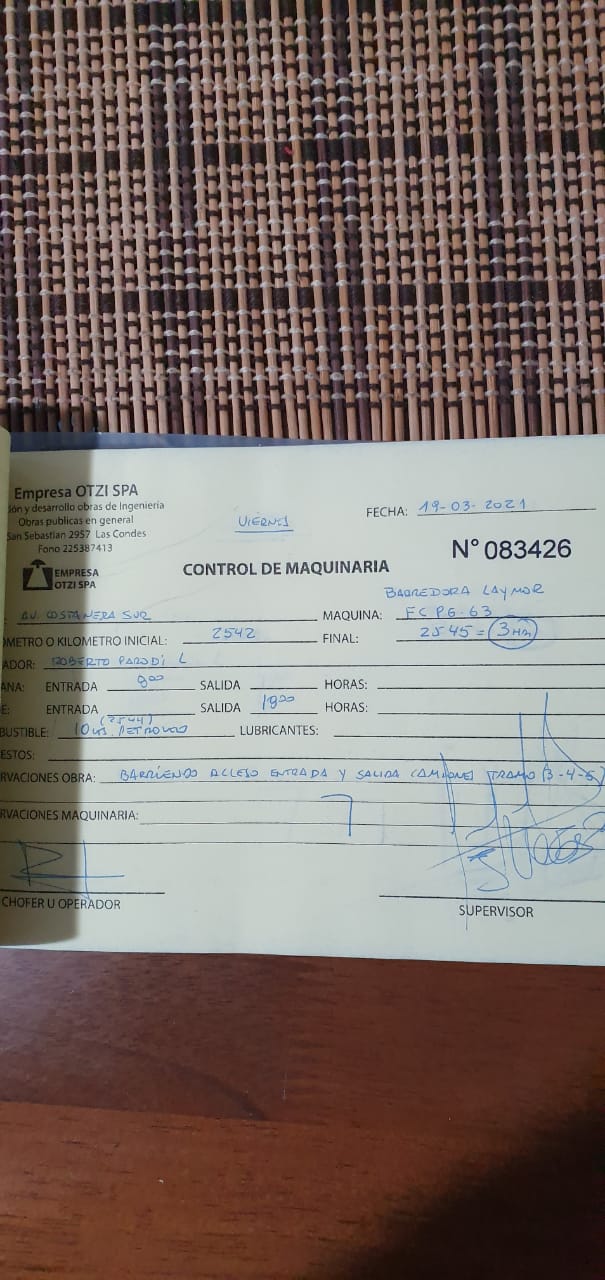 Empresa OTZI SPA
ión y desarrollo obras de Ingenieria
Obras publicas en general
San Sebastian 2957 Las Condes
Fono 225387413
EMPRESA
OTZI SPA
VIERNES
FECHA: 19-03-2021
N° 083426
CONTROL DE MAQUINARIA
BARREDORA LAYMOR
: AV. COSTANERA SUR MAQUINA: FCPG-63
OMETRO O KILOMETRO INICIAL: 2542 FINAL: 2545 = 3 Hm
ADOR: ROBERTO PARODI L
ANA: ENTRADA 8⁰⁰ SALIDA HORAS:
E: ENTRADA SALIDA 18⁰⁰ HORAS:
(2544)
BUSTIBLE: 10 LTS. PETROLEO LUBRICANTES:
ESTOS:
RVACIONES OBRA: BARRIENDO ACCESO ENTRADA Y SALIDA CAMIONES TRAMO (3-4-5)
RVACIONES MAQUINARIA:
CHOFER U OPERADOR
SUPERVISOR